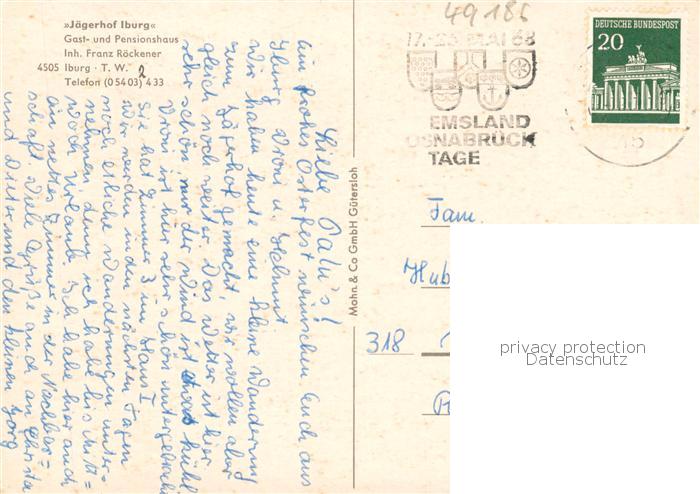 »Jägerhof Iburg«
Gast- und Pensionshaus
Inh. Franz Röckener
4505 Iburg · T. W.
Telefon (0 54 03) 2 433
49186
17.-26. MAI 68
EMSLAND
OSNABRÜCK
TAGE
DEUTSCHE BUNDESPOST
20
45
Mohn & Co GmbH Gütersloh
Liebe
Ein frohes Osterfest wünschen Euch aus
Iburg Vroni u. Helmut
Wir haben heute eine kleine Wanderung
zum Jägerhof gemacht, wir wollen aber
gleich noch weiter. Das Wetter ist hier
sehr schön nur der Wind ist etwas kühl
Vroni ist hier sehr schön untergebracht
Sie hat Zimmer 3 im Haus I
Wir werden in den nächsten Tagen
noch etliche Wanderungen unter-
nehmen denn ich habe bis
Urlaub. Ich habe hier auch
ein nettes Zimmer in der Nachbar-
schaft. Viele Grüße auch an Christa
und Dieter und den kleinen Jörg
Fam.
Hub
318
privacy protection
Datenschutz